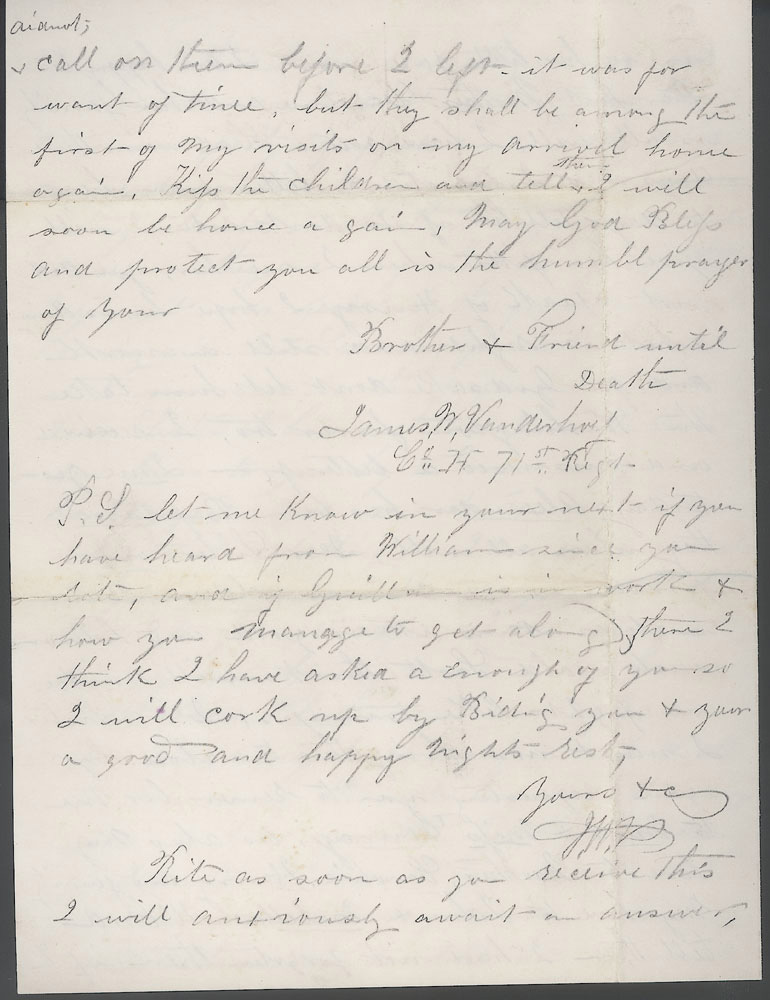 didnot;
call on them before I left. it was for
want of time, but they shall be among the
first of my visits on my arrivel home
again, Kiss the children and tell the I will
soon be home a gain, May God Bless
and protect you all is the humbl prayer
of your
Brother & Friend until
Death
James, W, Vanderhoef
Co. H 71st. Regt.
P.S. let me Know in your next if you
have heard from William since you
and if is in work &
how you manage to get along, there I
think I have asked a enough of you so
I will cork up by Biding you & your
a good and happy Nights Rest,
Yours &c
Rite as soon as you receive this
I will anxiously await an answer,